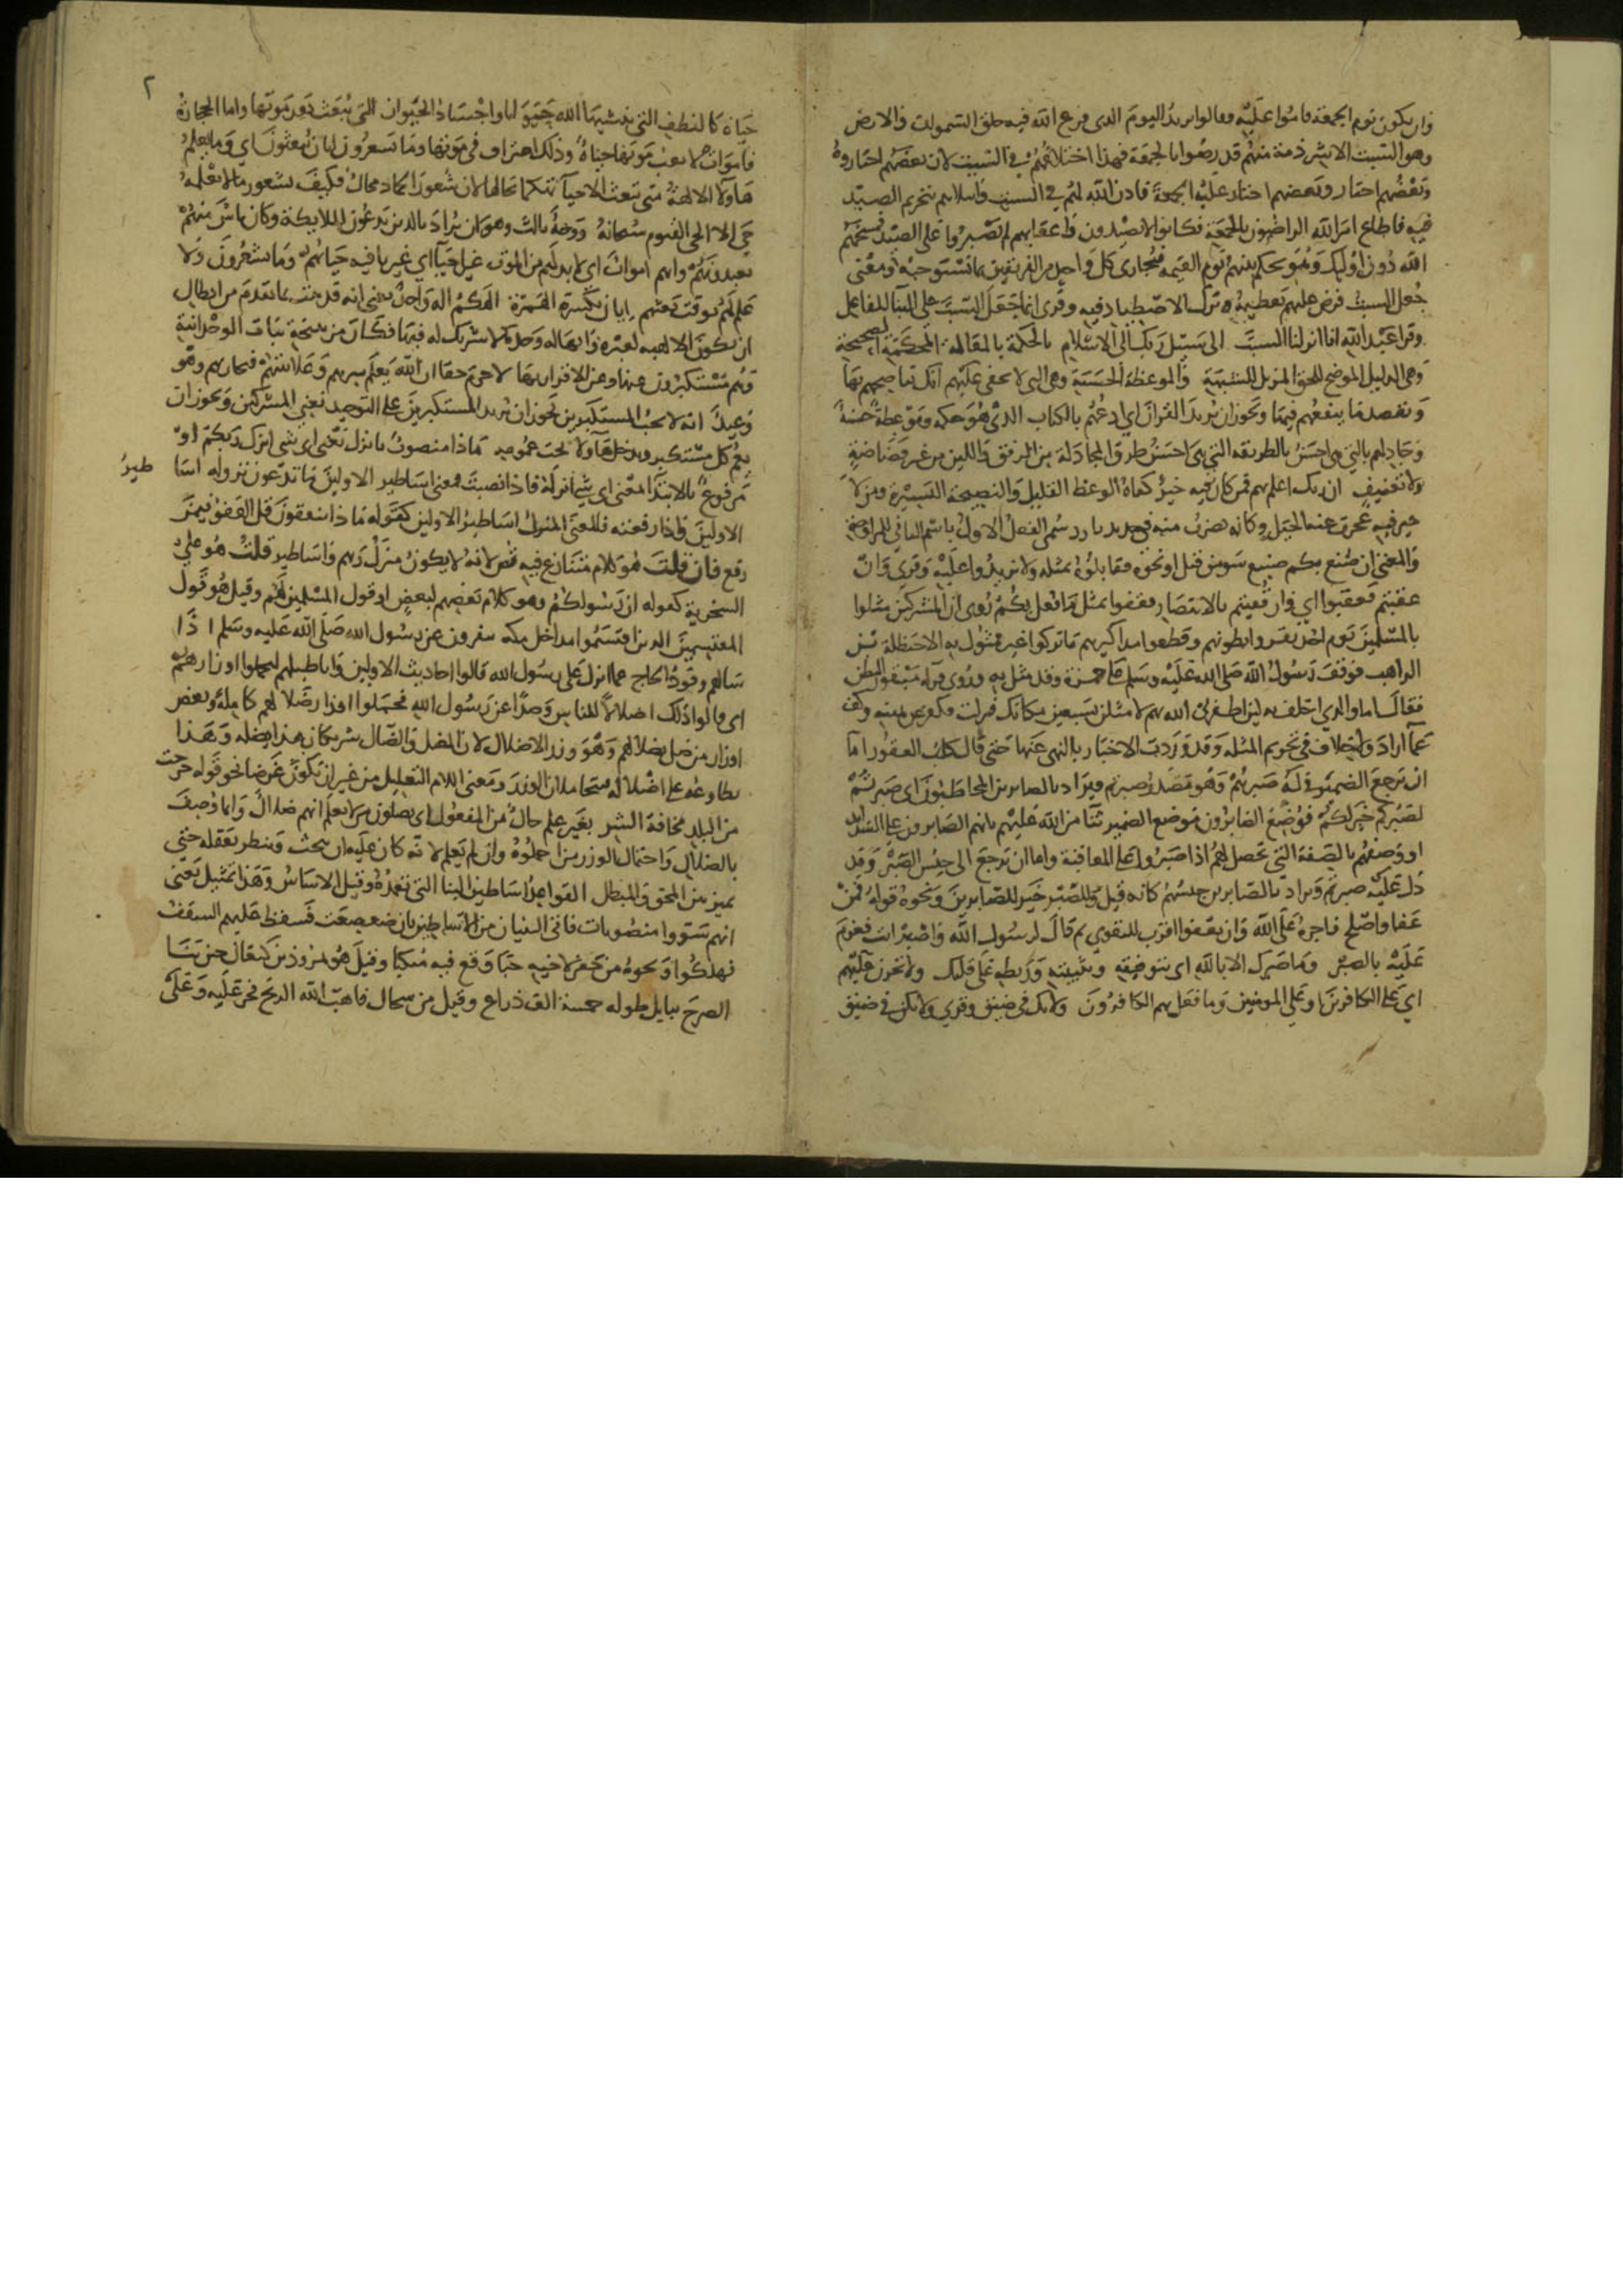 وان يكون يوم الجمعة فابوا عليه وقالوا نريد اليوم الذى فرغ الله فيه من خلق السموات والارض
وهو السبت الا شرذمة منهم قد رضوا بالجمعة فهذا اختلافهم في السبت لان بعضهم اختاروه
وبعضهم اختار عليه الجمعة فاذن الله لهم في السبت وابتلاهم بتحريم الصيد
فيه فاطاع امر الله الراضون بالجمعة فكانوا لا يصيدون واعقابهم لم يصبروا على الصيد فمسخهم
الله دون اوليك وهو يحكم بينهم يوم القيمة فيجازى كل واحد من الفريقين بما يستوجبه ومعنى
جعل السبت فرض عليهم تعظيمه وترك الاصطياد فيه وقرى انما جعل السبت على البنا للفاعل
وقرا عبد الله انا انزلنا السبت الى سبيل ربك الى الاسلام بالحكمة بالمقالة المحكمة الصحيحة
وهى الدليل الموضح للحق المزيل للشبهة والموعظة الحسنة وهى التى لا يخفى عليهم انك تناصحهم بها
وتقصد ما ينفعهم فيها ويجوز ان يريد القران اي ادعهم بالكتاب الذى هو حكمة وموعظة حسنة
وجادلهم بالتى هى احسن بالطريقة التى هى احسن طرق المجادلة من الرفق واللين من غير فضاضة
ولا تعنيف ان ربك اعلم بهم فمن كان فيه خير كفاه الوعظ القليل والنصيحة اليسيرة ومن لا
خير فيه عجزت عنه الحيل وكانه تضرب منه في حديد بارد سمى الفعل الاول باسم الثاني للمزاوجة
والمعنى ان صنع بكم صنيع سوء من قتل او نحوه فقابلوه بمثله ولا تزيدوا عليه وقرى وان
عقبتم فعقبوا اي وان قفيتم بالانتصار فقفوا بمثل ما فعل بكم روى ان المشركين مثلوا
بالمسلمين يوم احد بقروا بطونهم وقطعوا مذاكيرهم ما تركوا غير ممثول به الا حنظلة بن
الراهب فوقف رسول الله صلى الله عليه وسلم على حمزة وقد مثل به وروى فرآه مبقور البطن
فقال اما والذي احلف به لين اظفرنى الله بهم لا مثلن بسبعين مكانك فنزلت فكفر عن يمينه وكف
عما اراد ولا خلاف في تحريم المثلة وقد وردت الاخبار بالنهى عنها حتى قال كلب العقور اما
ان يرجع الضمير في لهو صبرهم وهو مصدر صبرتم ويراد بالصابرين المخاطبون اى صبرتم
لصبركم خير لكم فوضع الصابرون موضع الضمير ثنا من الله عليهم بانهم الصابرون على الشدايد
او وصفهم بالصفة التى تحصل لهم اذا صبروا على المعاقبة واما ان يرجع الى جنس الصبر وقد
دل عليه صبرتم ويراد بالصابرين جنسهم كانه قيل وللصبر خير للصابرين ونحوه قوله فمن
عفا واصلح فاجره على الله وان تعفوا اقرب للتقوى ثم قال لرسول الله واصبر انت فعزم
عليه بالصبر وما صبرك الا بالله اى بتوفيقه وتثبيته وربطه على قلبك ولا تحزن عليهم
اي على الكافرين او على المومنين وما فعل بهم الكافرون ولا تك في ضيق وقري ولا تكن في ضيق
٢
حياة كالنطف التى ينشيها الله حيوانا واجساد الحيوان التى تبعث بعد موتها واما الحجارة
فاموات لا يعقب موتها حياة وذلك اعرق في موتها وما يشعرون ايان يبعثون اي وما يعلم
هاولا الالهة متى تبعث الاحيا تهكما بحالها لان شعور الجماد محال فكيف بشعور ما لا يعلمه
حي الا الحي القيوم سبحانه ووجه ثالث وهو ان يراد بالذين يدعون الملايكة وكان ناس منهم
يعبدونهم وانهم اموات اى لا بد لهم من الموت غير احيا اي غير باقية حياتهم وما يشعرون ولا
علم لهم بوقت بعثهم ايان بكسرة الهمزة الهكم اله واحد يعنى انه قد ثبت بما تقدم من ابطال
ان تكون الالهية لغيره وانها له وحده لا شريك له فيها فكان من نتيجة ثبات الوحدانية
وهم مستكبرون عنها وعن الاقرار بها لا جرم حقا ان الله يعلم سرهم وعلانيتهم فيجازيهم وهو
وعيد انه لا يحب المستكبرين يجوز ان يريد المستكبرين على التوحيد يعني المشركين ويجوز ان
يعم كل مستكبر ويدخل هاولا تحت عمومه ماذا منصوب بانزل بمعنى اى شى انزل ربكم او
مرفوع بالابتدا بمعنى اى شي انزله فاذا نصبت فمعنى اساطير الاولين ما تدعون نزوله اسا طير
الاولين واذا رفعته فالمعنى المنزل اساطير الاولين كقوله ماذا ينفقون قل العفو فيمن
رفع فان قلت هو كلام متناقض لانه لا يكون منزل ربهم واساطير قلت هو على
السخرية كقوله ان رسولكم وهو كلام بعضهم لبعض او قول المسلمين لهم وقيل هو قول
المقتسمين الذين اقتسموا مداخل مكة ينفرون عن رسول الله صلى الله عليه وسلم اذا
سالهم وفود الحاج عما انزل على رسول الله قالوا احاديث الاولين واباطيلهم ليحملوا اوزارهم
اى قالوا ذلك اضلالا للناس وصدا عن رسول الله فحملوا اوزار ضلالهم كاملة وبعض
اوزار من ضل بضلالهم وهو وزر الاضلال لان المضل والضال شريكان هذا يضله وهذا
يطاوعه على اضلاله فيتحاملان الوزر ومعنى اللام التعليل من غير ان يكون غرضا نحو قوله خرجت
من البلد مخافة الشر بغير علم حال من المفعول اى يضلون من لا يعلم انهم ضلال وانما وصف
بالضلال واحتمال الوزر من اضلوه وان لم يعلم لانه كان عليه ان يبحث وينظر بعقله حتى
يميز بين المحق والمبطل القواعد اساطين البنا التى تعمده وقيل الاساس وهذا تمثيل يعنى
انهم سووا منصوبات فاتى البنيان من الاساطين بان ضعضعت فسقط عليهم السقف
فهلكوا ونحوه من حفر لاخيه جبا وقع فيه منكبا وقيل هو نمروذ بن كنعان حين بنا
الصرح ببابل طوله خمسة الف ذراع وقيل فرسخان فاهب الله الريح فخر عليه وعلى